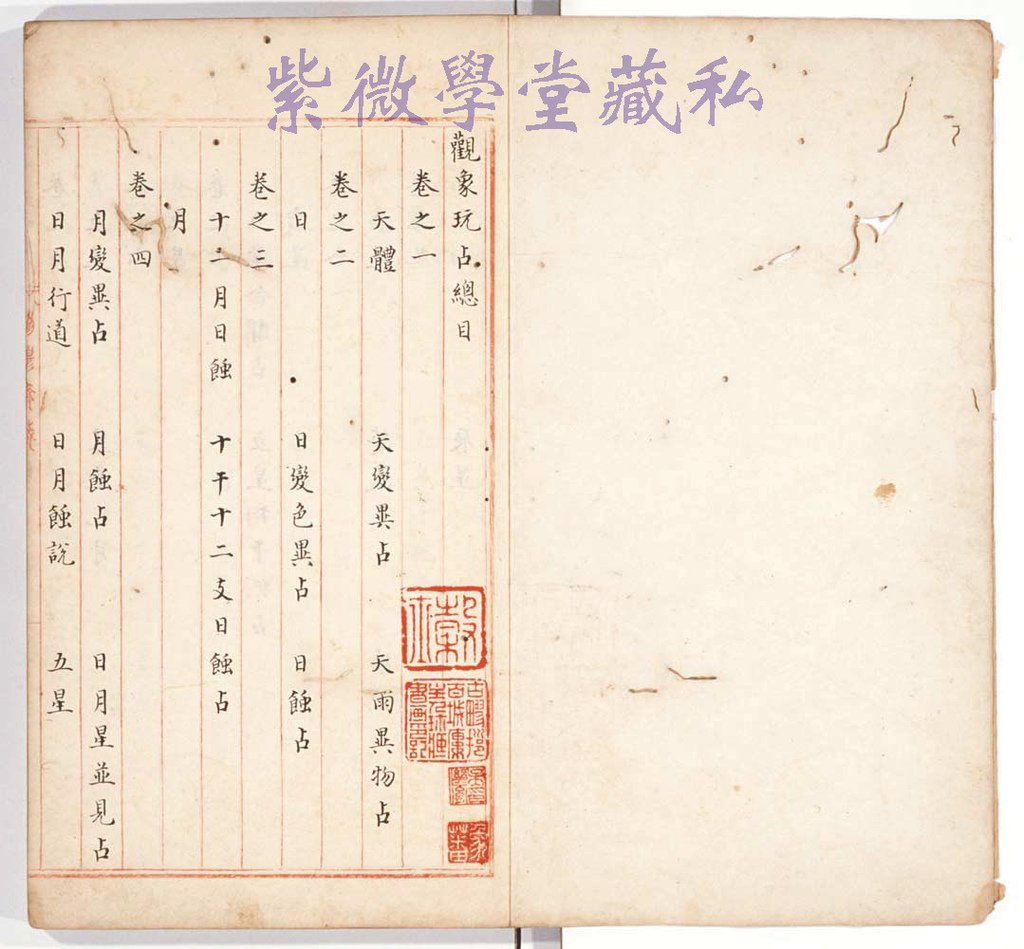 紫微學堂藏私
觀象玩占總目
卷之一
天體 天變異占 天雨異物占
卷之二
日 日變色異占 日蝕占
卷之三
十二月日蝕 十干十二支日蝕占
月
卷之四
月變異占 月蝕占 日月星並見占
日月行道 日月蝕說 五星